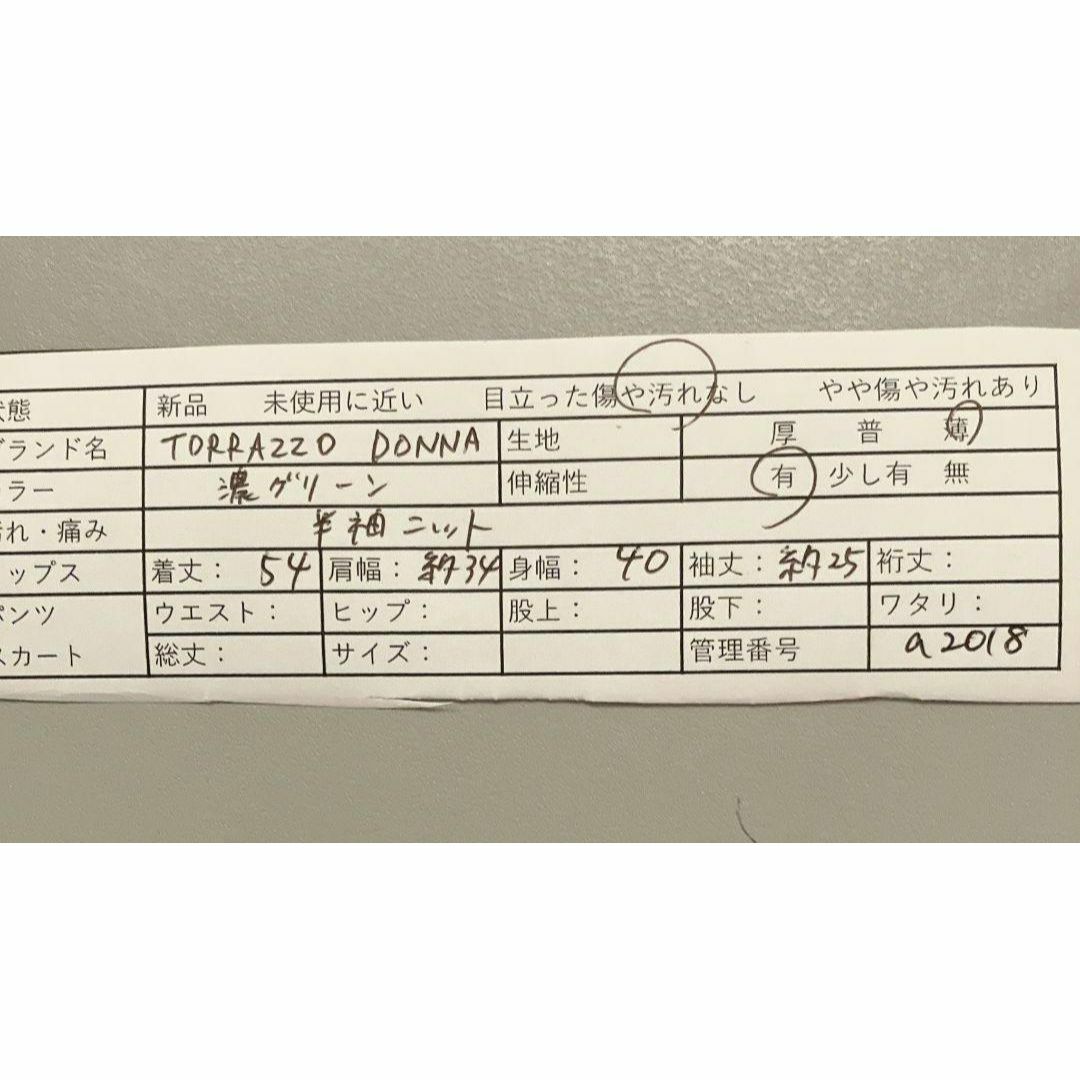 状態 新品 未使用に近い 目立った傷や汚れなし やや傷や汚れあり
ブランド名 TORRAZZO DONNA 生地 厚 普 薄
カラー 濃グリーン 伸縮性 有 少し有 無
汚れ・痛み 半袖ニット
トップス 着丈： 54 肩幅： 約34 身幅： 40 袖丈： 約25 裄丈：
パンツ ウエスト： ヒップ： 股上： 股下： ワタリ：
スカート 総丈： サイズ： 管理番号 a2018